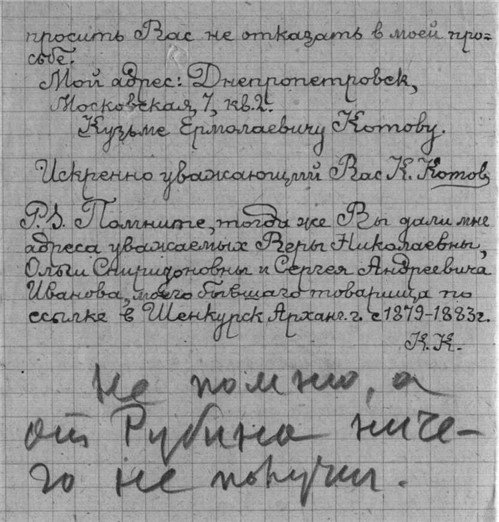 просить Вас не отказать в моей про=
сьбе.
Мой адрес: Днепропетровск,
Московская, 7, кв. 2.
Кузьме Ермолаевичу Котову.
Искренно уважающий Вас К. Котов
P.S. Помните, тогда же Вы дали мне
адреса уважаемых Веры Николаевны,
Ольги Спиридоновны и Сергея Андреевича
Иванова, моего бывшаго товарища по
ссылке в Шенкурск Арханг. г. с 1879-1883 г.
К. К.
Не помню, а
от Рубина ниче-
го не получил.